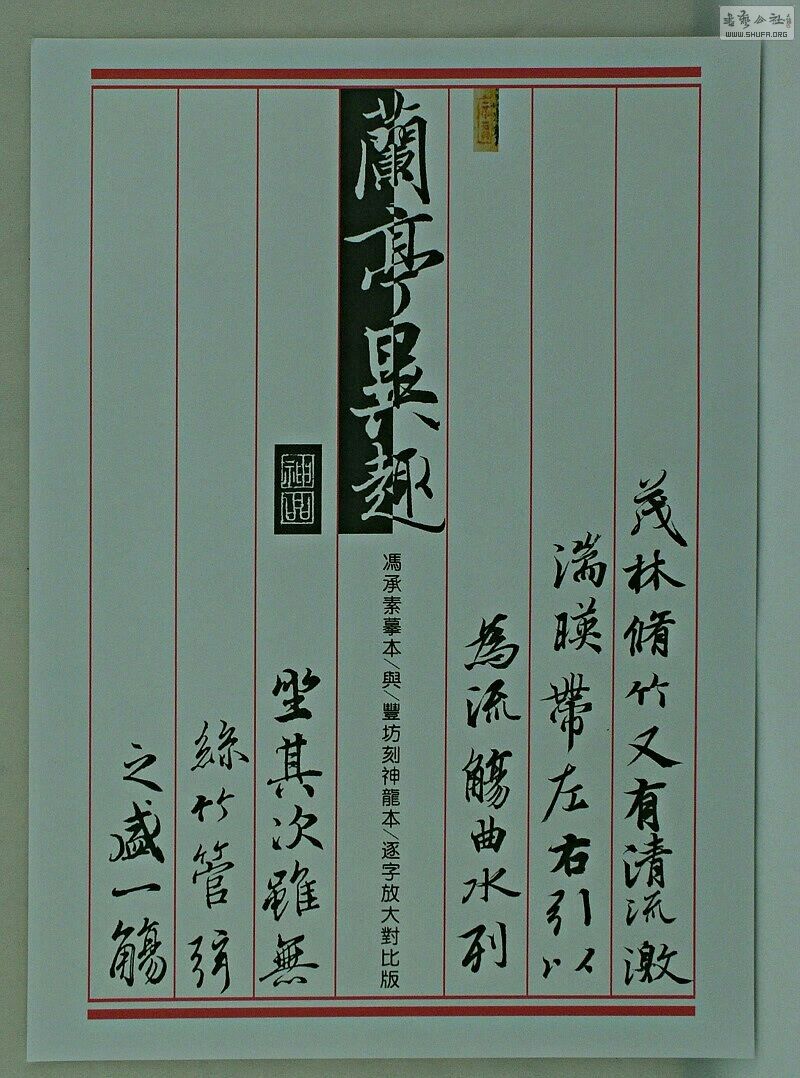 茂林脩竹又有清流激
湍暎帶左右引以
為流觴曲水列
蘭亭異趣
馮承素摹本/與/豐坊刻神龍本/逐字放大對比版
神品
坐其次雖無
絲竹管弦
之盛一觴
書藝公社
WWW.SHUFA.ORG